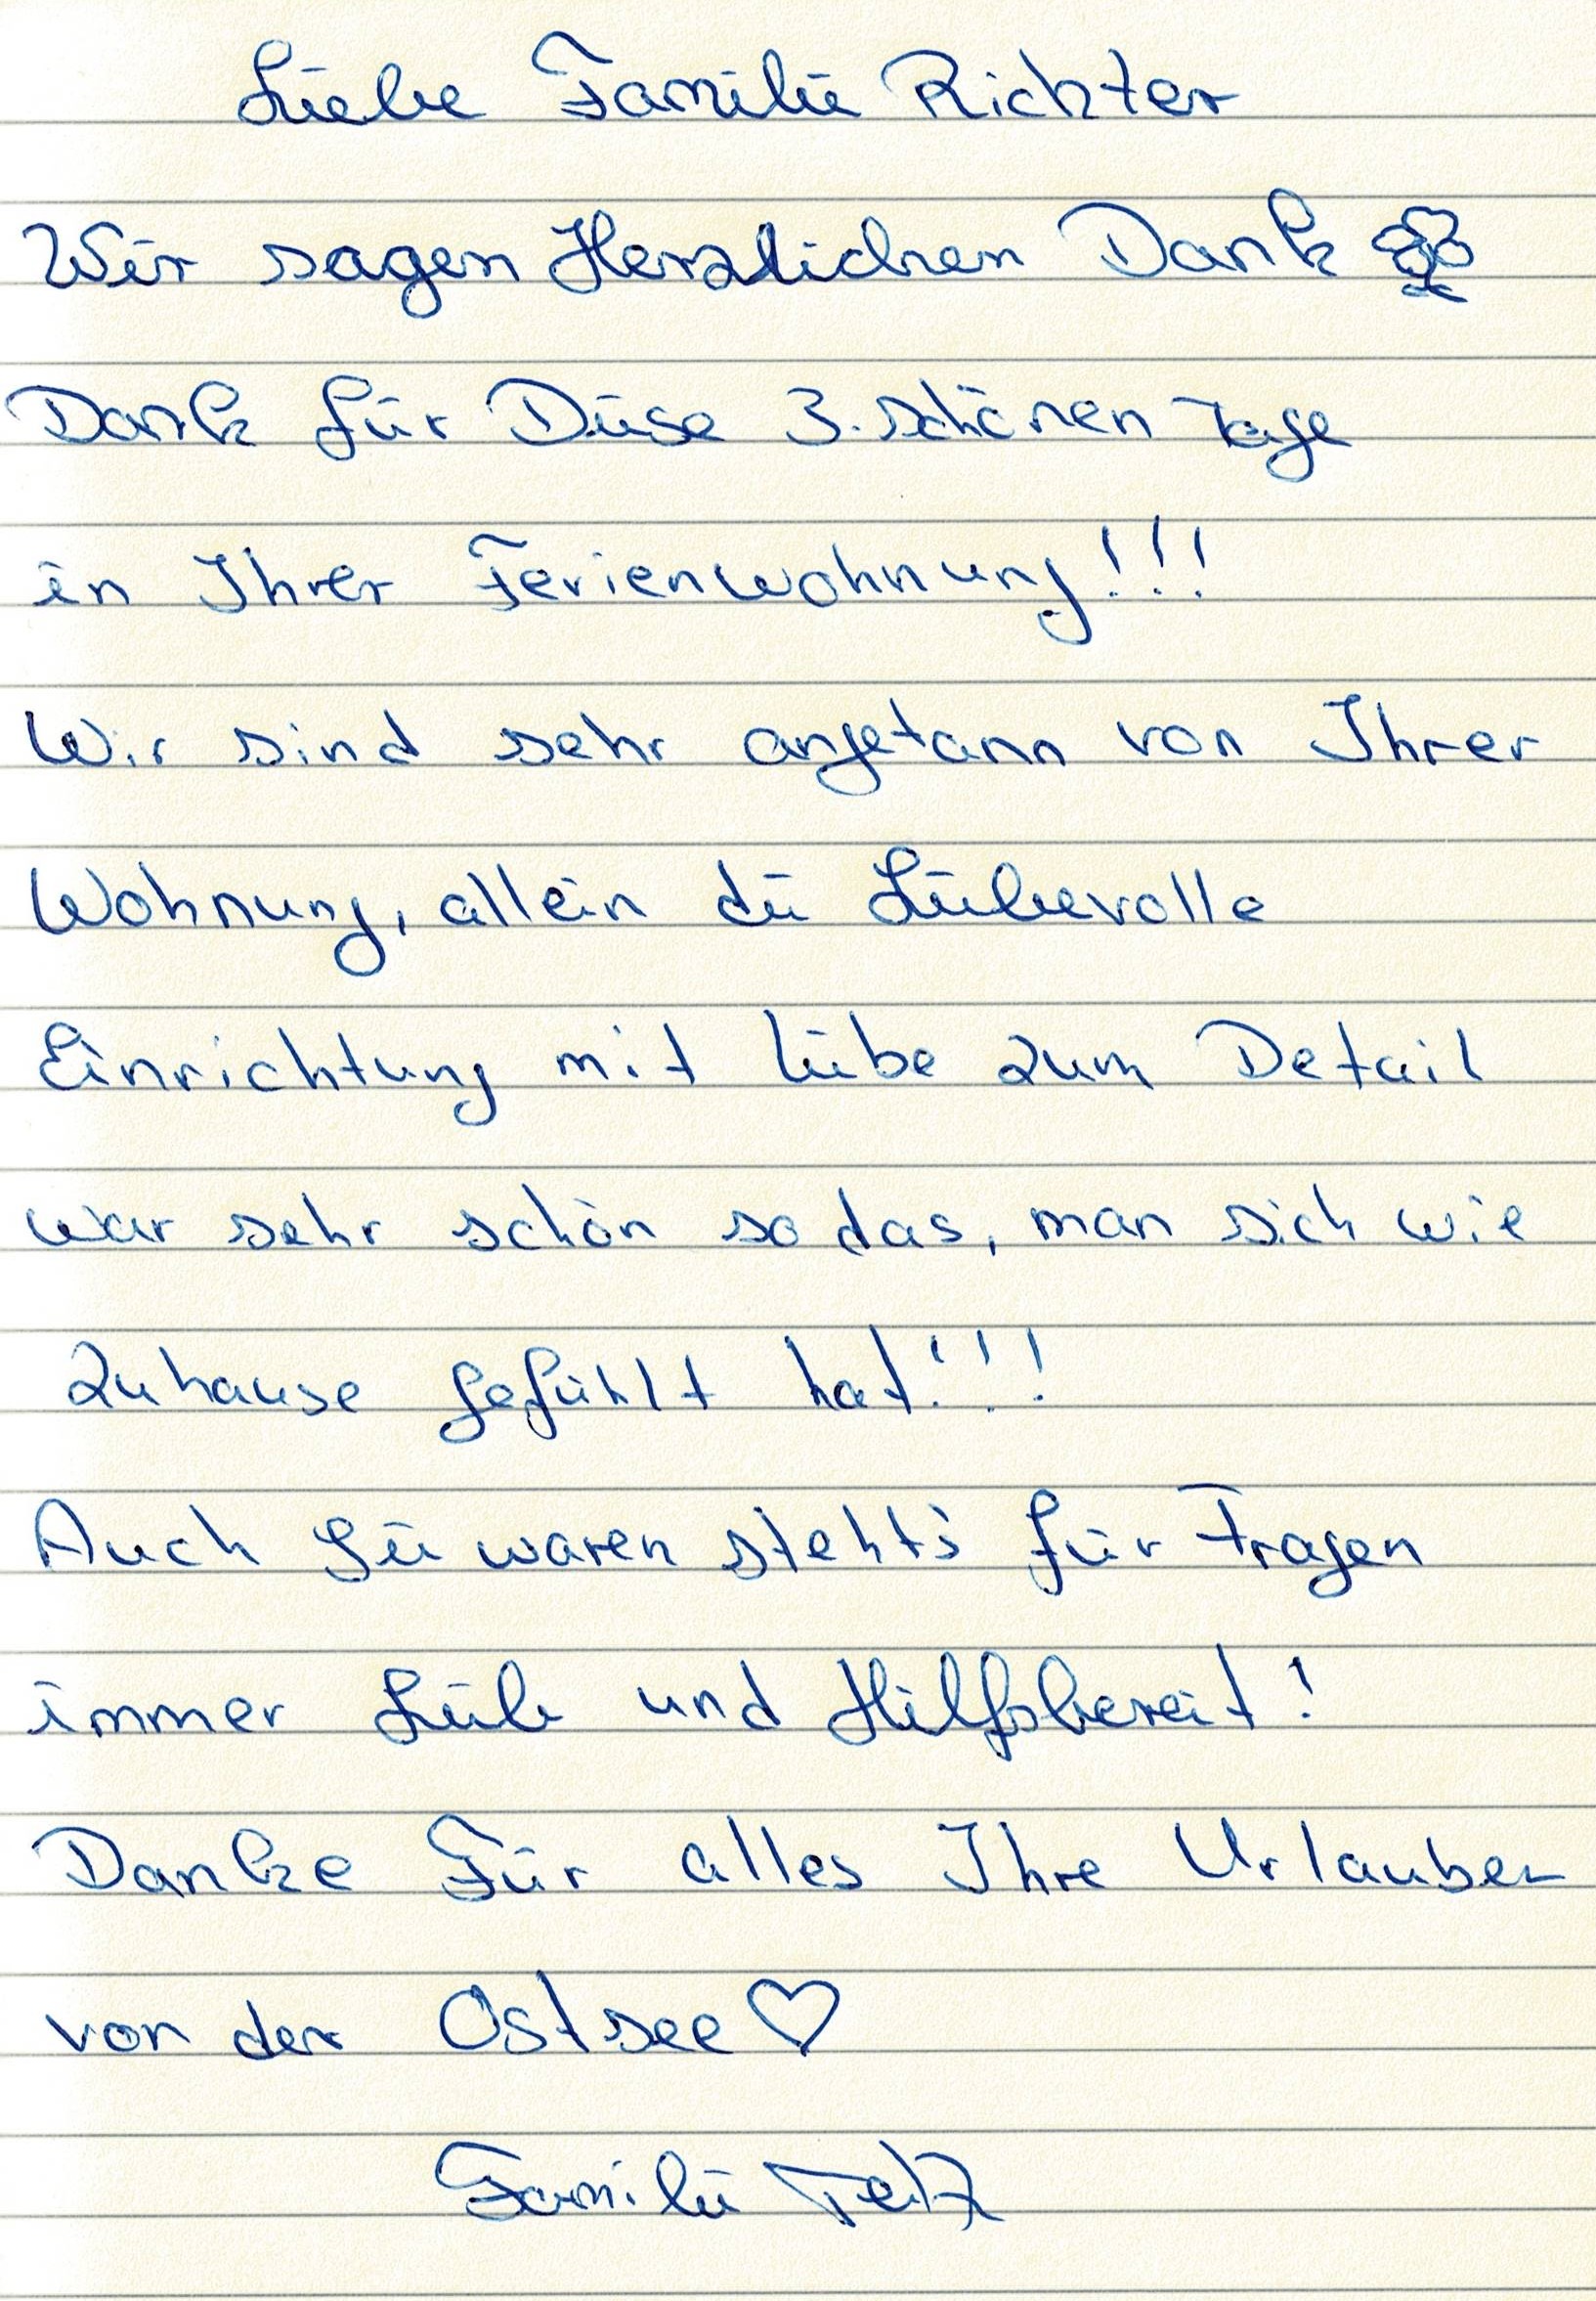 Liebe Familie Richter
Wir sagen Herzlichen Dank
Dank für Diese 3. schönen Tage
in Ihrer Ferienwohnung!!!
Wir sind sehr angetann von Ihrer
Wohnung, allein die Liebevolle
Einrichtung mit liebe zum Detail
war sehr schön so das, man sich wie
zuhause gefühlt hat!!!
Auch Sie waren stehts für Fragen
immer Lieb und Hilfsbereit!
Danke Für alles Ihre Urlauber
von der Ostsee♡
Familie